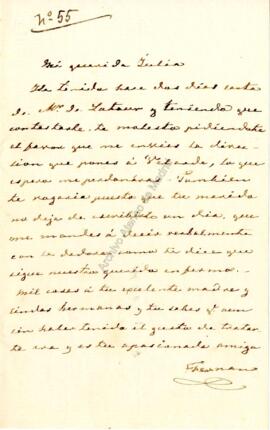 nº 55
Mi querida Julia
He tenido hace dos dias carta
de Mr. de Latour y teniendo que
contestarle te molesto pidiendote
el favor que me envies la direc
cion que pones á , la que
espero me perdonáras. Tambien
te rogaria puesto que tu marido
no deja de escribirte un dia, que
me mandes á decir verbalmente
con la dadora como te dice que
sigue nuestro querido enfermo.
Mil cosas á tu excelente madre y
lindas hermanas y tu sabes qe aun
sin haber tenido el gusto de tratar
te era y es tu apasionada amiga
Fernan
Archivo